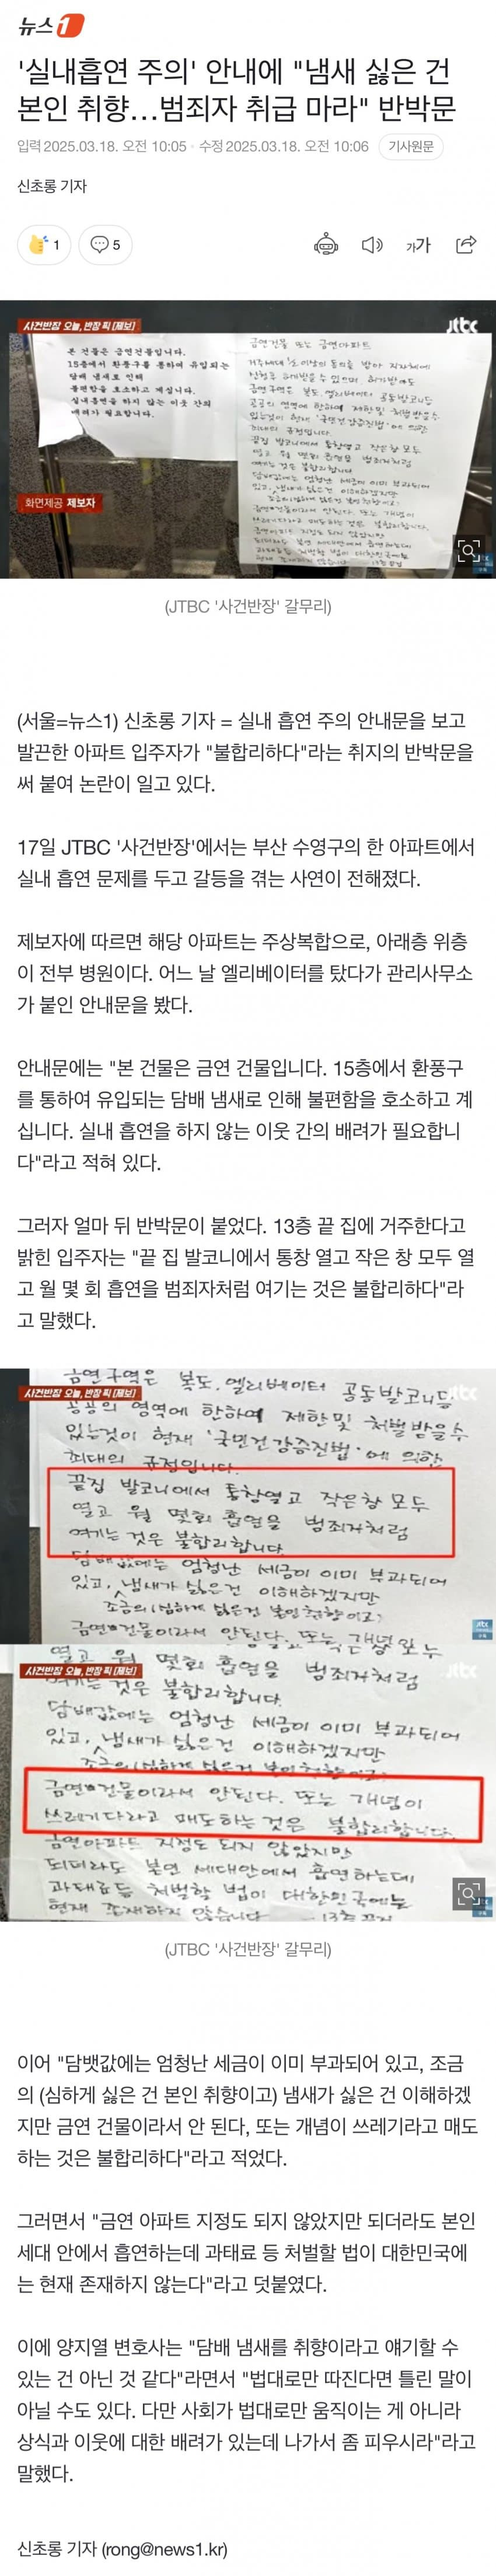 뉴스1
'실내흡연 주의' 안내에 "냄새 싫은 건
본인 취향…범죄자 취급 마라" 반박문
입력 2025.03.18. 오전 10:05 · 수정 2025.03.18. 오전 10:06 기사원문
신초롱 기자
1 5 가가
사건반장 오늘, 반장 픽 [제보]
jtbc
본 건물은 금연건물입니다.
15층에서 환풍구를 통하여 유입되는
담배 냄새로 인해
불편함을 호소하고 계십니다.
실내흡연을 하지 않는 이웃 간의
배려가 필요합니다.
금연건물 또는 금연아파트
금연구역은 복도, 엘리베이터 공동발코니등
공공의 영역에 한하여 제한및 처벌받을수
있는것이 현재 '국민건강증진법'에 의한
최대의 규정입니다.
끝집 발코니에서 통창열고 작은창 모두
열고 월 몇회 흡연을 범죄자처럼
여기는 것은 불합리합니다.
담배값에는 엄청난 세금이 이미 부과되어
있고, 냄새가 싫은건 이해하겠지만
화면제공 제보자
(JTBC '사건반장' 갈무리)
(서울=뉴스1) 신초롱 기자 = 실내 흡연 주의 안내문을 보고
발끈한 아파트 입주자가 "불합리하다"라는 취지의 반박문을
써 붙여 논란이 일고 있다.
17일 JTBC '사건반장'에서는 부산 수영구의 한 아파트에서
실내 흡연 문제를 두고 갈등을 겪는 사연이 전해졌다.
제보자에 따르면 해당 아파트는 주상복합으로, 아래층 위층
이 전부 병원이다. 어느 날 엘리베이터를 탔다가 관리사무소
가 붙인 안내문을 봤다.
안내문에는 "본 건물은 금연 건물입니다. 15층에서 환풍구
를 통하여 유입되는 담배 냄새로 인해 불편함을 호소하고 계
십니다. 실내 흡연을 하지 않는 이웃 간의 배려가 필요합니
다"라고 적혀 있다.
그러자 얼마 뒤 반박문이 붙었다. 13층 끝 집에 거주한다고
밝힌 입주자는 "끝 집 발코니에서 통창 열고 작은 창 모두 열
고 월 몇 회 흡연을 범죄자처럼 여기는 것은 불합리하다"라
고 말했다.
금연구역은 복도, 엘리베이터 공동발코니등
사건반장 오늘, 반장 픽 [제보]
jtbc
공공의 영역에 한하여 제한및 처벌받을수
있는것이 현재 '국민건강증진법'에 의한
최대의 규정입니다.
끝집 발코니에서 통창열고 작은창 모두
열고 월 몇회 흡연을 범죄자처럼
여기는 것은 불합리합니다.
담배값에는 엄청난 세금이 이미 부과되어
있고, 냄새가 싫은건 이해하겠지만
조금의 (심하게 싫은건 본인 취향이고)
금연건물이라서 안된다. 또는 개념이
열고 월 몇회 흡연을 범죄자처럼
사건반장 오늘, 반장 픽 [제보]
jtbc
여기는 것은 불합리합니다.
담배값에는 엄청난 세금이 이미 부과되어
있고, 냄새가 싫은건 이해하겠지만
조금의 (심하게 싫은건 본인 취향이고)
금연건물이라서 안된다. 또는 개념이
쓰레기다라고 매도하는 것은 불합리합니다.
금연아파트 지정도 되지 않았지만
되더라도 본인 세대안에서 흡연하는데
과태료등 처벌할 법이 대한민국에는
현재 존재하지 않습니다 - 13층 끝집
(JTBC '사건반장' 갈무리)
이어 "담뱃값에는 엄청난 세금이 이미 부과되어 있고, 조금
의 (심하게 싫은 건 본인 취향이고) 냄새가 싫은 건 이해하겠
지만 금연 건물이라서 안 된다, 또는 개념이 쓰레기라고 매도
하는 것은 불합리하다"라고 적었다.
그러면서 "금연 아파트 지정도 되지 않았지만 되더라도 본인
세대 안에서 흡연하는데 과태료 등 처벌할 법이 대한민국에
는 현재 존재하지 않는다"라고 덧붙였다.
이에 양지열 변호사는 "담배 냄새를 취향이라고 얘기할 수
있는 건 아닌 것 같다"라면서 "법대로만 따진다면 틀린 말이
아닐 수도 있다. 다만 사회가 법대로만 움직이는 게 아니라
상식과 이웃에 대한 배려가 있는데 나가서 좀 피우시라"라고
말했다.
신초롱 기자 (rong@news1.kr)